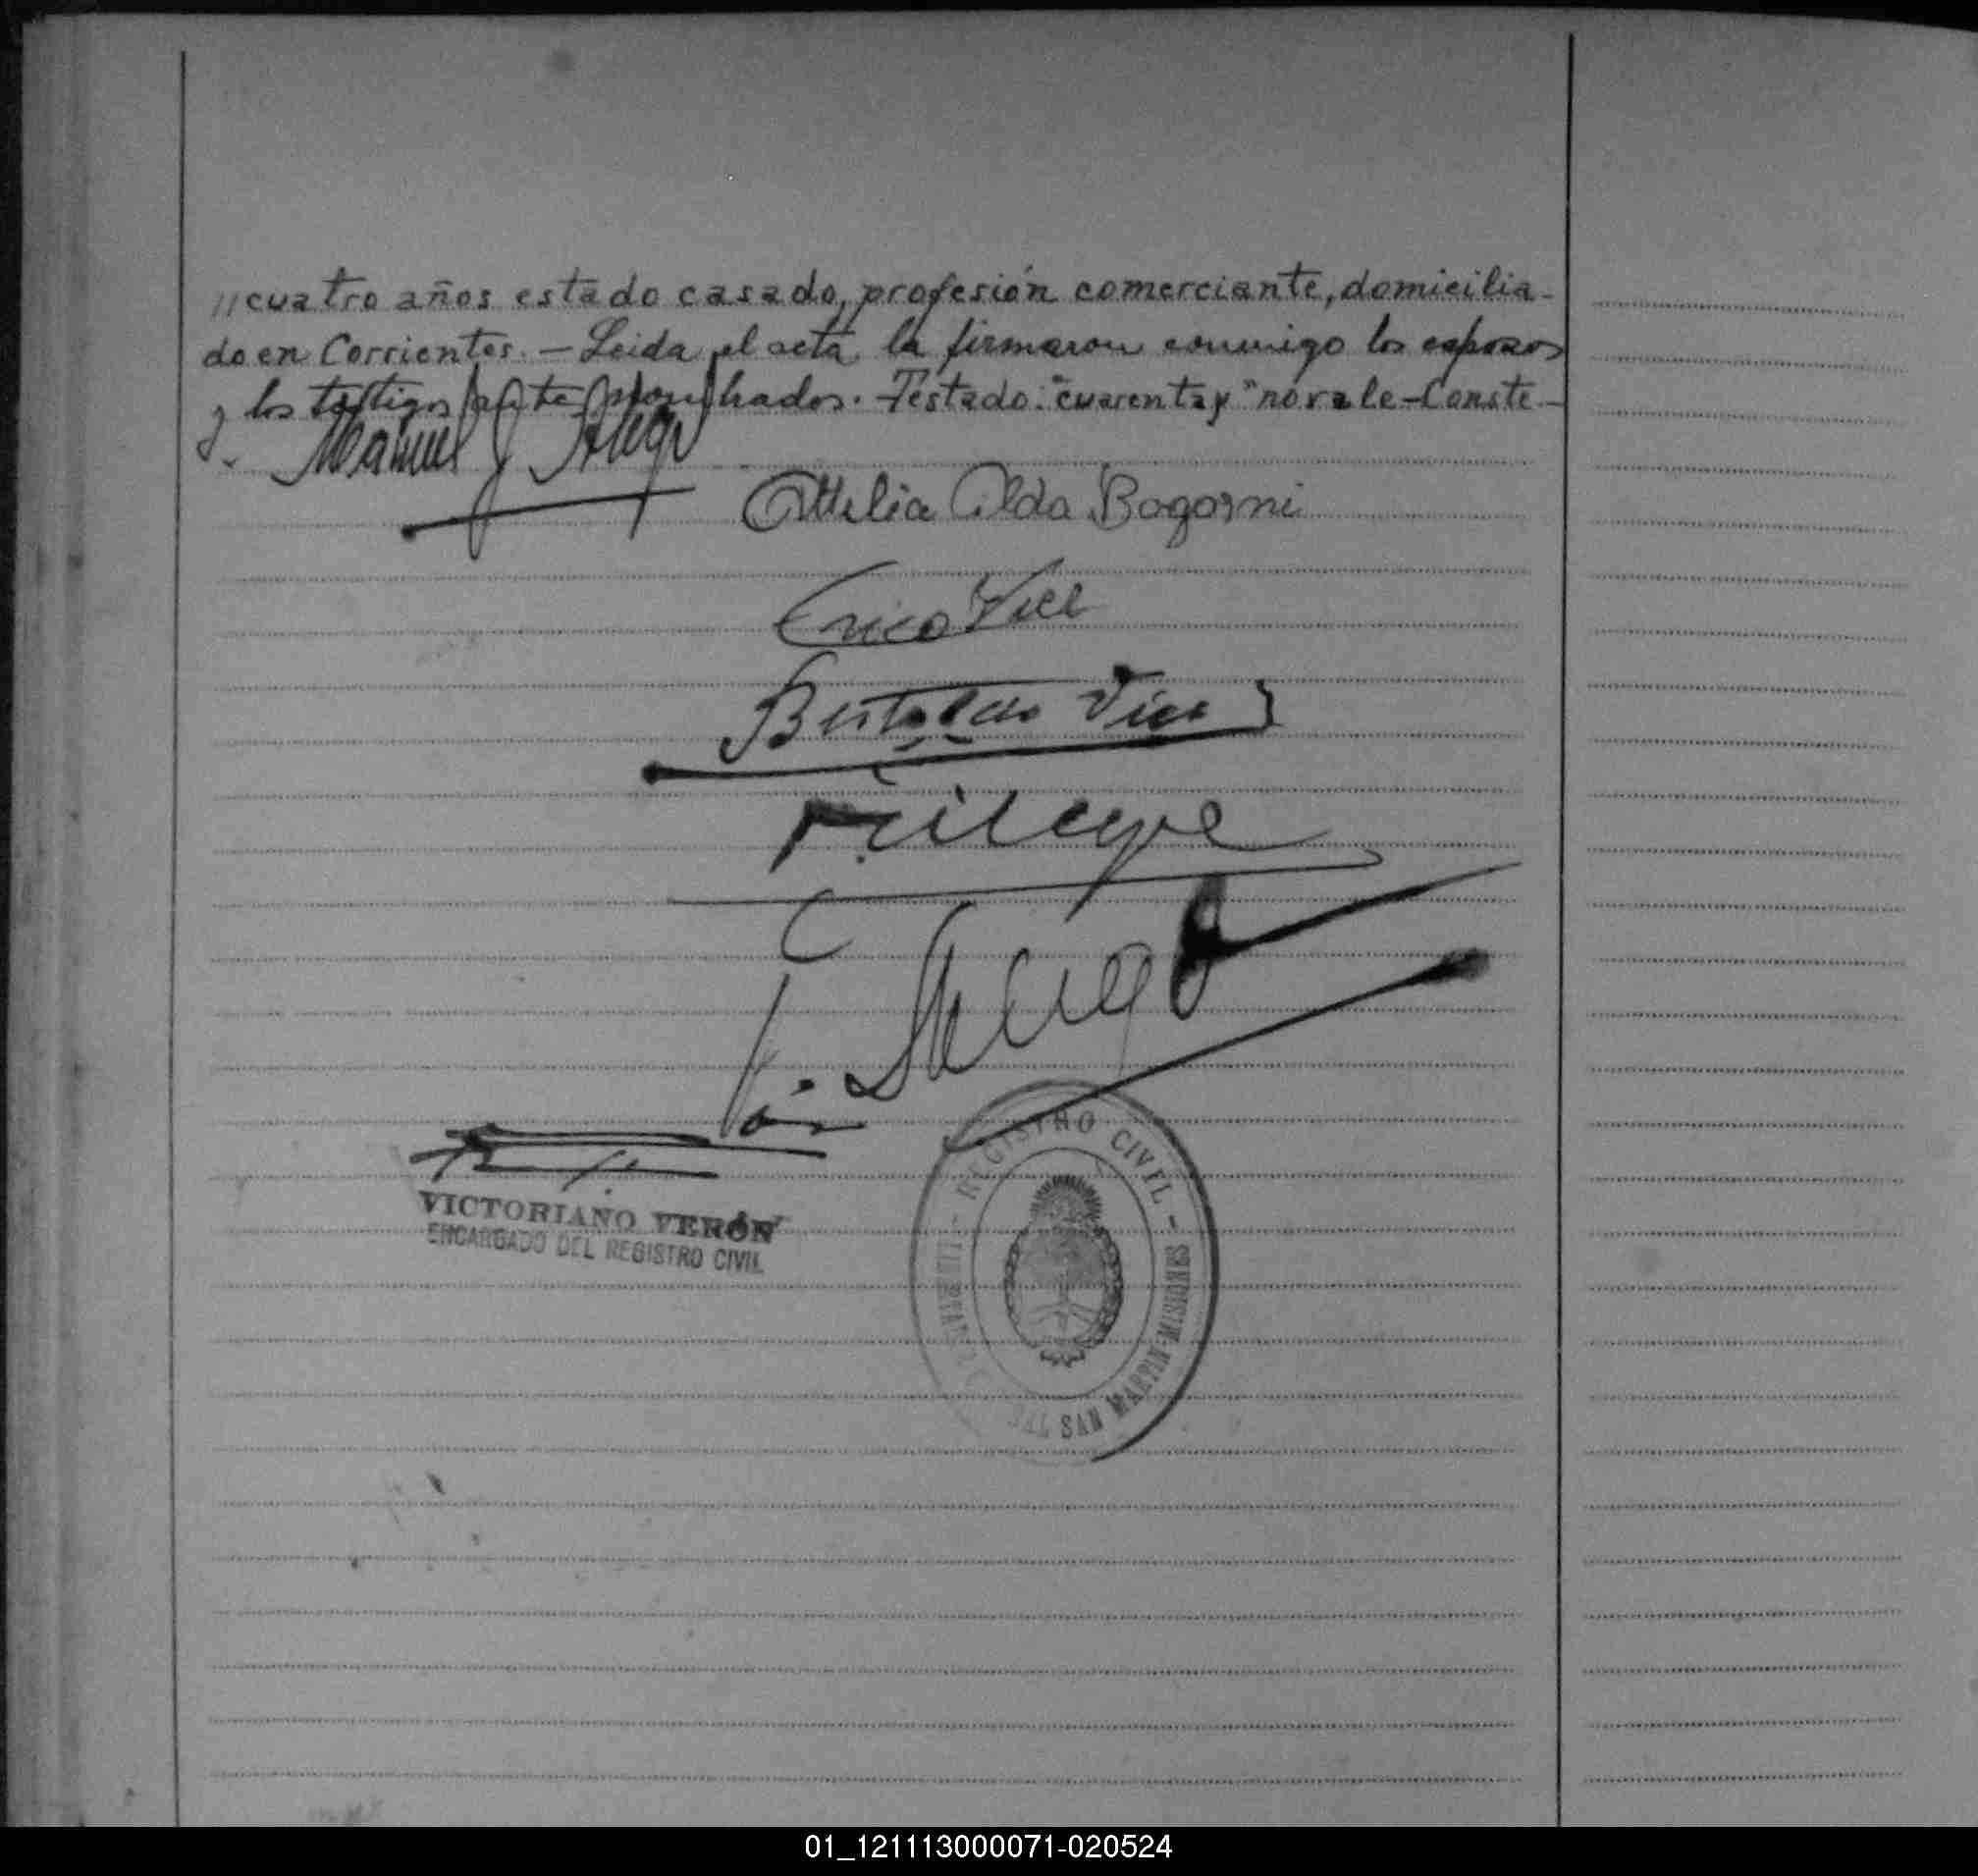 //cuatro años estado casado, profesión comerciante, domicilia-
do en Corrientes. - Leida el acta la firmaron conmigo los esposos
y los testigos ante nombrados. - Testado: "cuarenta y" no vale - Conste -
Manuel
Ottelia Alda Bagorni
Erico
Bertoldo
VICTORIANO VERÓN
ENCARGADO DEL REGISTRO CIVIL
REGISTRO CIVIL -
SAN MARTIN - MISIONES
01_121113000071-020524